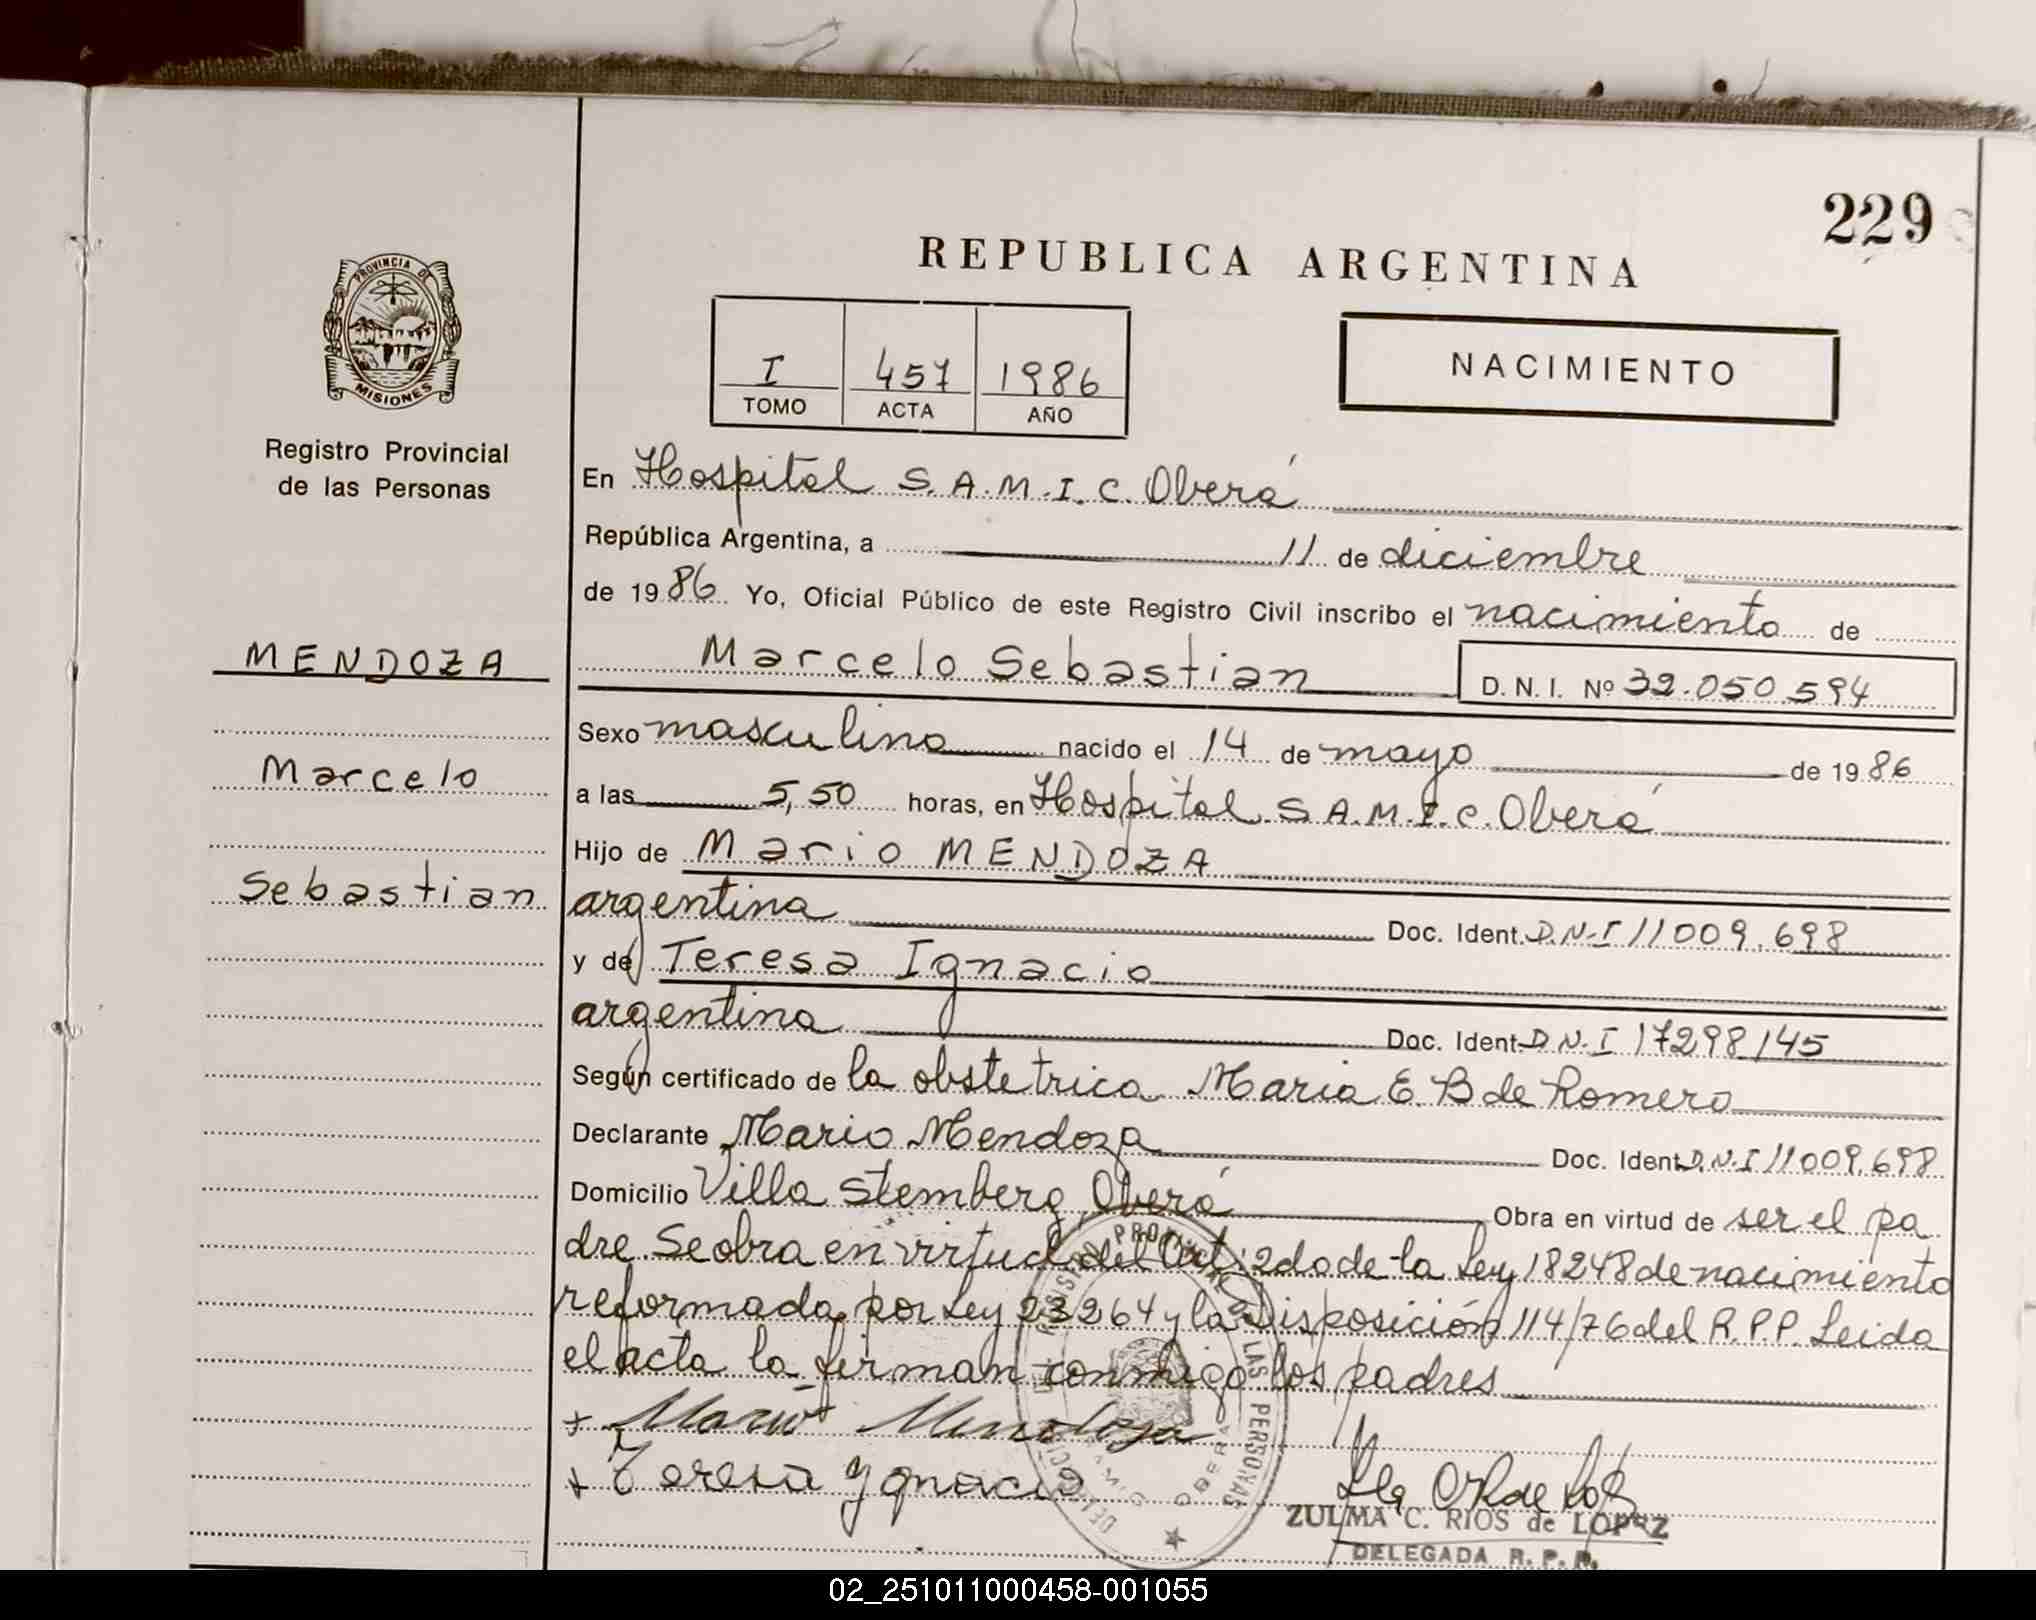 229
REPUBLICA ARGENTINA
PROVINCIA DE
MISIONES
I 457 1986
TOMO ACTA AÑO
NACIMIENTO
Registro Provincial
de las Personas
En Hospital S.A.M.I.C. Oberá
República Argentina, a 11 de diciembre
de 1986 Yo, Oficial Público de este Registro Civil inscribo el nacimiento de
MENDOZA
Marcelo Sebastian D.N.I. Nº 32.050.594
Sexo masculino nacido el 14 de mayo de 1986
Marcelo
a las 5,50 horas, en Hospital S.A.M.I.C. Oberá
Hijo de Mario MENDOZA
Sebastian
argentina Doc. Ident. D.N.I 11009.698
y de Teresa Ignacio
argentina Doc. Ident. D.N.I 17298145
Según certificado de la obstetrica Maria E. B de Romero
Declarante Mario Mendoza Doc. Ident. D.N.I 11009.698
Domicilio Villa Stemberg, Oberá Obra en virtud de ser el pa
dre. Se obra en virtud del Art. 2do de la Ley 18248 de nacimiento
reformada por Ley 23264 y la Disposición 114/76 del R.P.P. Leida
el acta la firman conmigo los padres
+ Mario Mendoza
+ Teresa Ygnacio
LAS PERSONAS
OBERA
ZULMA C. RIOS de LOPEZ
DELEGADA R. P. P.
02_251011000458-001055